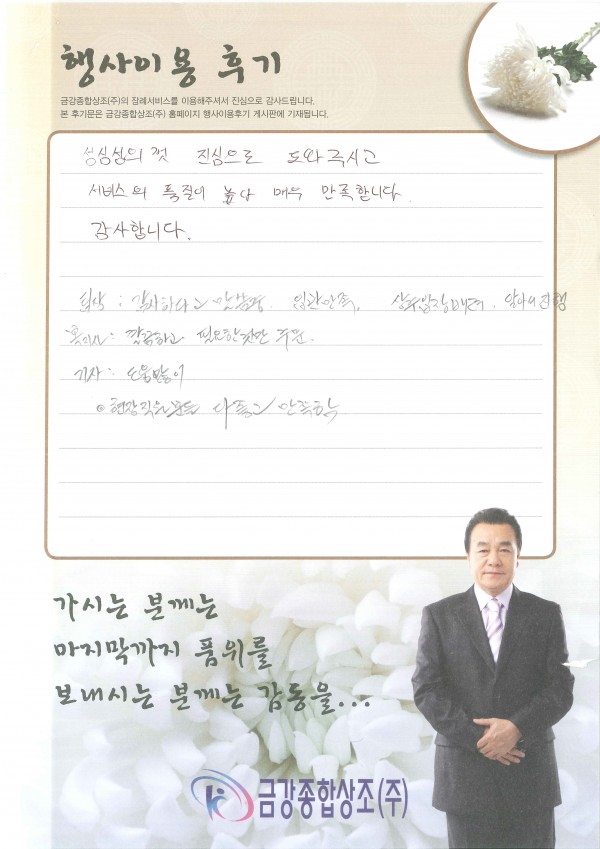 행사이용 후기
금강종합상조(주)의 장례서비스를 이용해주셔서 진심으로 감사드립니다.
본 후기문은 금강종합상조(주) 홈페이지 행사이용후기 게시판에 기재됩니다.
성심성의껏 진심으로 도와주시고
서비스의 품질이 높아 매우 만족합니다.
감사합니다.
감사하다고 입관만족,
깔끔하고 필요한것만 주문.
기사: 도움많이
현장직원분들 다들 만족함
가시는 분께는
마지막까지 품위를
보내시는 분께는 감동을...
금강종합상조(주)